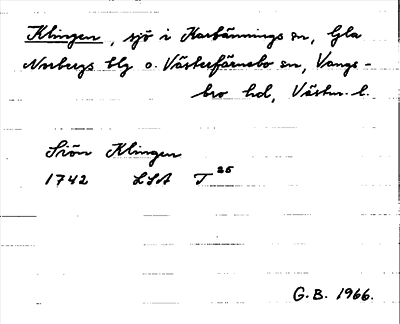 Klingen, sjö i Karbennings sn, Gla
Norbergs blg o. Västerfärnebo sn, Vangs-
bro hd, Västm. l.
Siön Klingen
1742 LSA T 25
G.B. 1966.